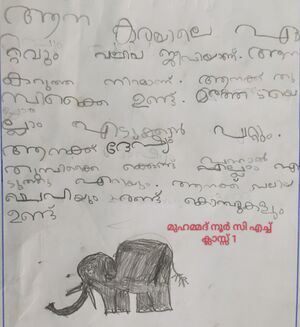 ആന കരയിലെ ഏ
റ്റവും വലിയ ജീവിയാണ്. ആന
കറുത്ത നിറമാണ്. ആനക്ക് തു
മ്പിക്കൈ ഉണ്ട്.
എടുക്കാൻ പറ്റും.
ആനക്ക് ദേഷ്യം
തുമ്പിക്കൈ കൊണ്ട് എല്ലാം എ
ആനക്ക് വലിയ
ചെവിയും രണ്ട് കൊമ്പുകളും
ഉണ്ട്
മുഹമ്മദ് നൂർ സി എച്ച്
ക്ലാസ്സ് 1